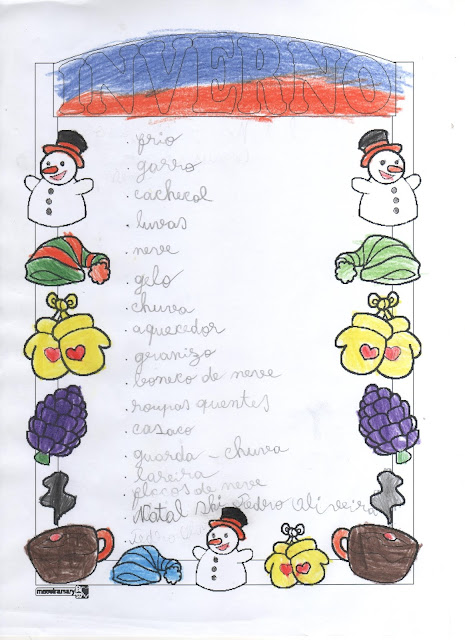 INVERNO
. frio
. gorro
. cachecol
. luvas
. neve
. gelo
. chuva
. aquecedor
. geranizo
. boneco de neve
. roupas quentes
. casaco
. guarda-chuva
. lareira
. flocos de neve
. Natal Pedro Oliveira